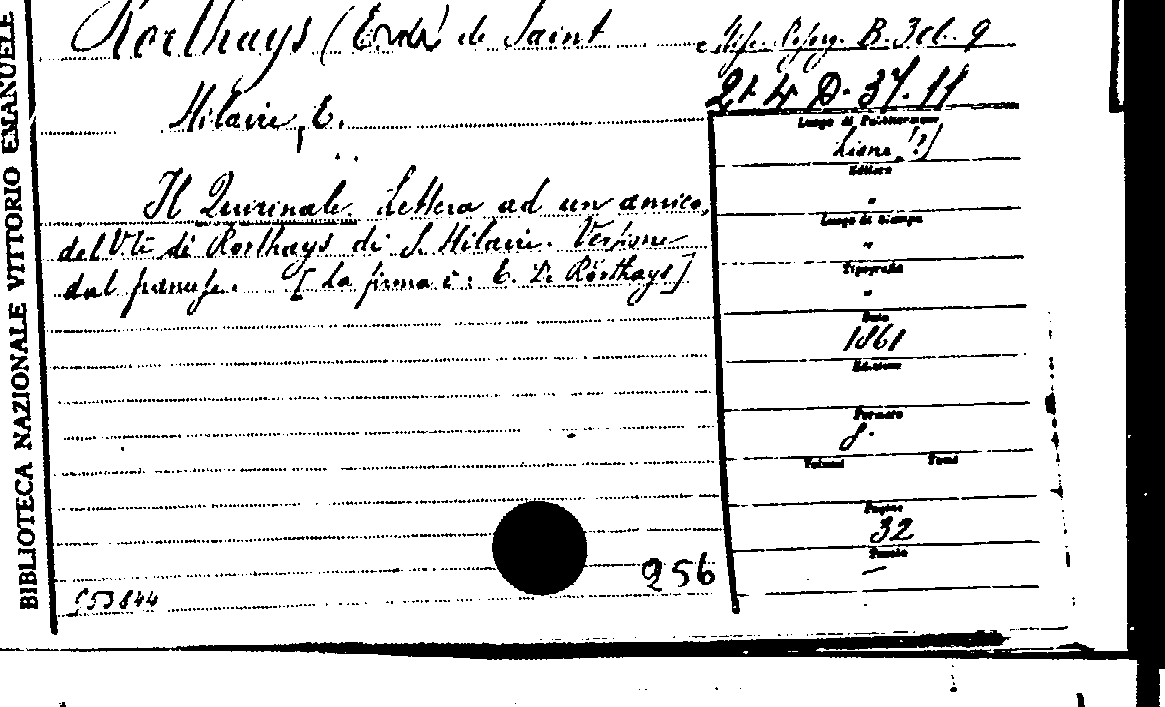 BIBLIOTECA NAZIONALE VITTORIO EMANUELE
Rorthays (     ) de Saint
Hilaire, E.
Il Quirinale. Lettera ad un amico,
del Vte di Rorthays di S. Hilaire. Versione
dal francese. [La firma è: E. De Rorthays]
Misc. B. 361. 9
21. 4. D. 37. 11
Luogo di Pubblicazione
[?]
Editore
"
Luogo di stampa
"
Tipografia
"
Data
1861
Edizione
Formato
8.
Volumi Tomi
Pagine
32
Tavole
—
256
953844